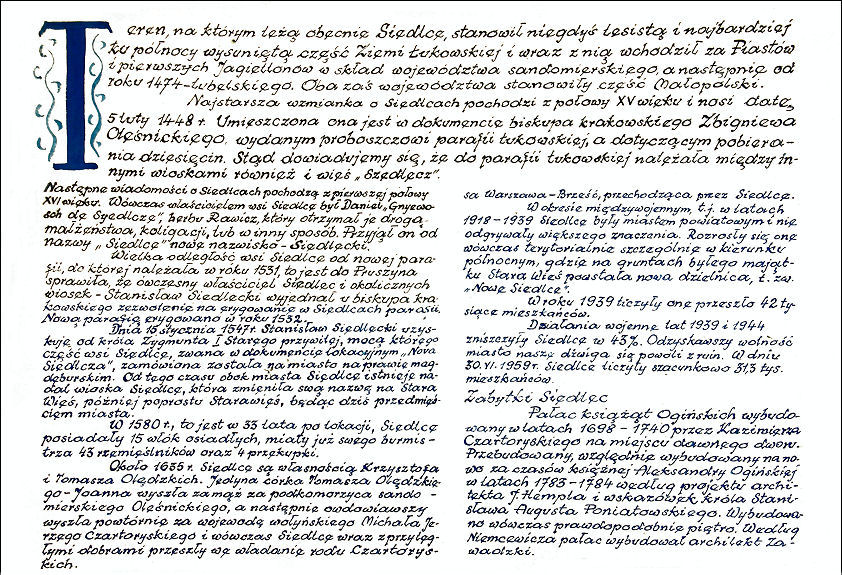 Teren, na którym leżą obecnie Siedlce, stanowił niegdyś lesistą i najbardziej
ku północy wysuniętą część Ziemi Łukowskiej i wraz z nią wchodził za Piastów
i pierwszych Jagiellonów w skład województwa sandomierskiego, a następnie od
roku 1474-lubelskiego. Oba zaś województwa stanowiły część Małopolski.
Najstarsza wzmianka o Siedlcach pochodzi z połowy XV wieku i nosi datę,
5 luty 1448 r. Umieszczona ona jest w dokumencie biskupa krakowskiego Zbigniewa
Oleśnickiego, wydanym proboszczowi parafii łukowskiej, a dotyczącym pobiera-
nia dziesięcin. Stąd dowiadujemy się, że do parafii łukowskiej należała między in-
nymi wioskami również i wieś „Szedlecz".
Następne wiadomości o Siedlcach pochodzą z pierwszej połowy
XVI wieku. Wówczas właścicielem wsi Siedlce był Daniel „Gnyewo-
sch de Syedlcze", herbu Rawicz, który otrzymał je drogą
małżeństwa, koligacji, lub w inny sposób. Przyjął on od
nazwy „Siedlce" nowe nazwisko - Siedlecki.
Wielka odległość wsi Siedlce od nowej para-
fii, do której należała w roku 1531, to jest do Pruszyna
sprawiła, że ówczesny właściciel Siedlec i okolicznych
wiosek - Stanisław Siedlecki wyjednał u biskupa kra-
kowskiego zezwolenie na erygowanie w Siedlcach parafii.
Nową parafię erygowano w roku 1532.
Dnia 15 stycznia 1547 r. Stanisław Siedlecki uzys-
kuje od króla Zygmunta I Starego przywilej, mocą którego
część wsi Siedlce, zwana w dokumencie lokacyjnym „Nova
Siedlcza", zamówiona została na miasto na prawie mag-
deburskim. Od tego czasu obok miasta Siedlce istnieje na-
dal wioska Siedlce, która zmieniła swą nazwę na Stara
Wieś, później poprostu Starawieś, będąc dziś przedmieś-
ciem miasta.
W 1580 r., to jest w 33 lata po lokacji, Siedlce
posiadały 15 włók osiadłych, miały już swego burmis-
trza 43 rzemieślników oraz 4 przekupki.
Około 1635 r. Siedlce są własnością Krzysztofa
i Tomasza Olędzkich. Jedyna córka Tomasza Olędzkie-
go - Joanna wyszła za mąż za podkomorzyca sando-
mierskiego Oleśnickiego, a następnie owdowiawszy
wyszła powtórnie za wojewodę wołyńskiego Michała Je-
rzego Czartoryskiego i wówczas Siedlce wraz z przyleg-
łymi dobrami przeszły we władanie rodu Czartorys-
kich.
sa Warszawa - Brześć, przechodząca przez Siedlce.
W okresie międzywojennym, t.j. w latach
1918 - 1939 Siedlce były miastem powiatowym i nie
odgrywały większego znaczenia. Rozrosły się one
wówczas terytorialnie szczególnie w kierunku
północnym, gdzie na gruntach byłego mająt-
ku Stara Wieś powstała nowa dzielnica, t. zw.
„Nowe Siedlce".
W roku 1939 liczyły one przeszło 42 ty-
siące mieszkańców.
Działania wojenne lat 1939 i 1944
zniszczyły Siedlce w 43%. Odzyskawszy wolność
miasto nasze dźwiga się powoli z ruin. W dniu
30.VI.1959r. Siedlce liczyły szacunkowo 31,3 tys.
mieszkańców.
Zabytki Siedlec
Pałac książąt Ogińskich wybudo-
wany w latach 1698 - 1740 przez Kazimierza
Czartoryskiego na miejscu dawnego dworu.
Przebudowany, względnie wybudowany na no-
wo za czasów księżnej Aleksandry Ogińskiej
w latach 1783 - 1784 według projektu archi-
tekta J. Hempla i wskazówek króla Stani-
sława Augusta Poniatowskiego. Wybudowa-
no wówczas prawdopodobnie piętro. Według
Niemcewicza pałac wybudował architekt Za-
wadzki.